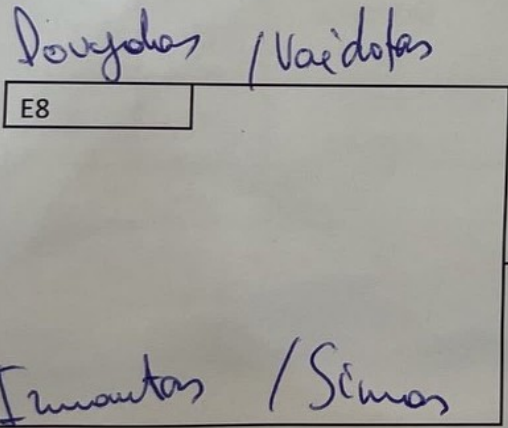 Dovydas / Vaidotas
E8
Imantas / Simas